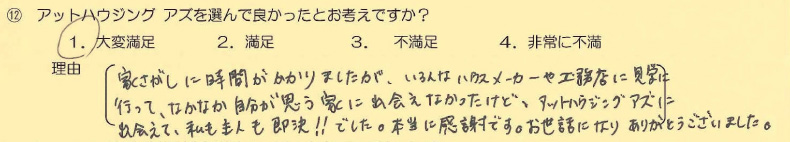 ⑫ アットハウジング アズを選んで良かったとお考えですか？
1. 大変満足 2. 満足 3. 不満足 4. 非常に不満
理由
家さがしに時間がかかりましたが、いろんなハウスメーカーや工務店に見学に
行って、なかなか自分が思う家に出会えなかったけど、アットハウジングアズに
出会えて、私も主人も即決!!でした。本当に感謝です。お世話になりありがとうございました。